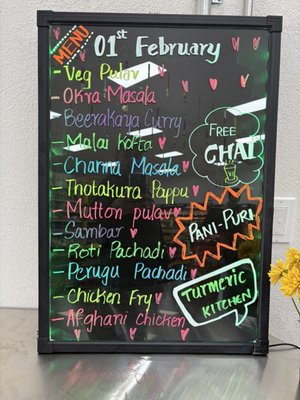 MENU
01st February
- Veg Pulav
- Okra Masala
- Beerakaya Curry
- Malai Kofta
- Channa Masala
- Thotakura Pappu
- Mutton pulav
- Sambar
- Roti Pachadi
- Perugu Pachadi
- Chicken Fry
- Afghani Chicken
FREE
CHAI
PANI-PURI
TURMERIC
KITCHEN